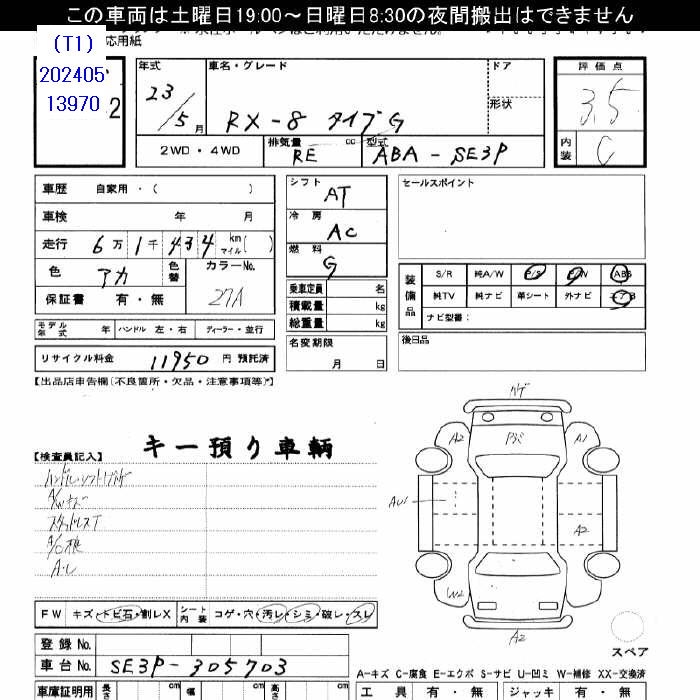 この車両は土曜日19:00～日曜日8:30の夜間搬出はできません
応用紙
(T1)
202405
13970
2
年式 車名・グレード ドア 評価点
23/5月 RX-8 タイプG 形状 3.5
2WD・4WD 排気量 RE cc 型式 ABA-SE3P 内装 C
車歴 自家用・( )
シフト AT
セールスポイント
車検 年 月
冷房 AC
走行 6万1千434 km マイル( )
燃料 G
色 アカ 色替 カラーNo. 27A
保証書 有・無
乗車定員 名
積載量 kg
総重量 kg
装備品 S/R 純A/W P/S P/W ABS
純TV 純ナビ 革シート 外ナビ エアB
ナビ型番：
モデル年式 年 ハンドル 左・右 ディーラー・並行
名変期限 月 日
後日品
リサイクル料金 11950 円 預託済
【出品店申告欄(不良箇所・欠品・注意事項等)】
キー預り車輌
【検査員記入】
A/Wキズ
スタッドレスT
A2 A1
AU1
A2
W2
A2
FW キズ・トビ石・割レX シート内装 コゲ・穴・汚レ・シミ・破レ・スレ
スペア
登録No.
車台No. SE3P-305703
A-キズ C-腐食 E-エクボ S-サビ U-凹ミ W-補修 XX-交換済
車庫証明用 長さ cm 幅 cm 高さ cm
工具 有・無 ジャッキ 有・無